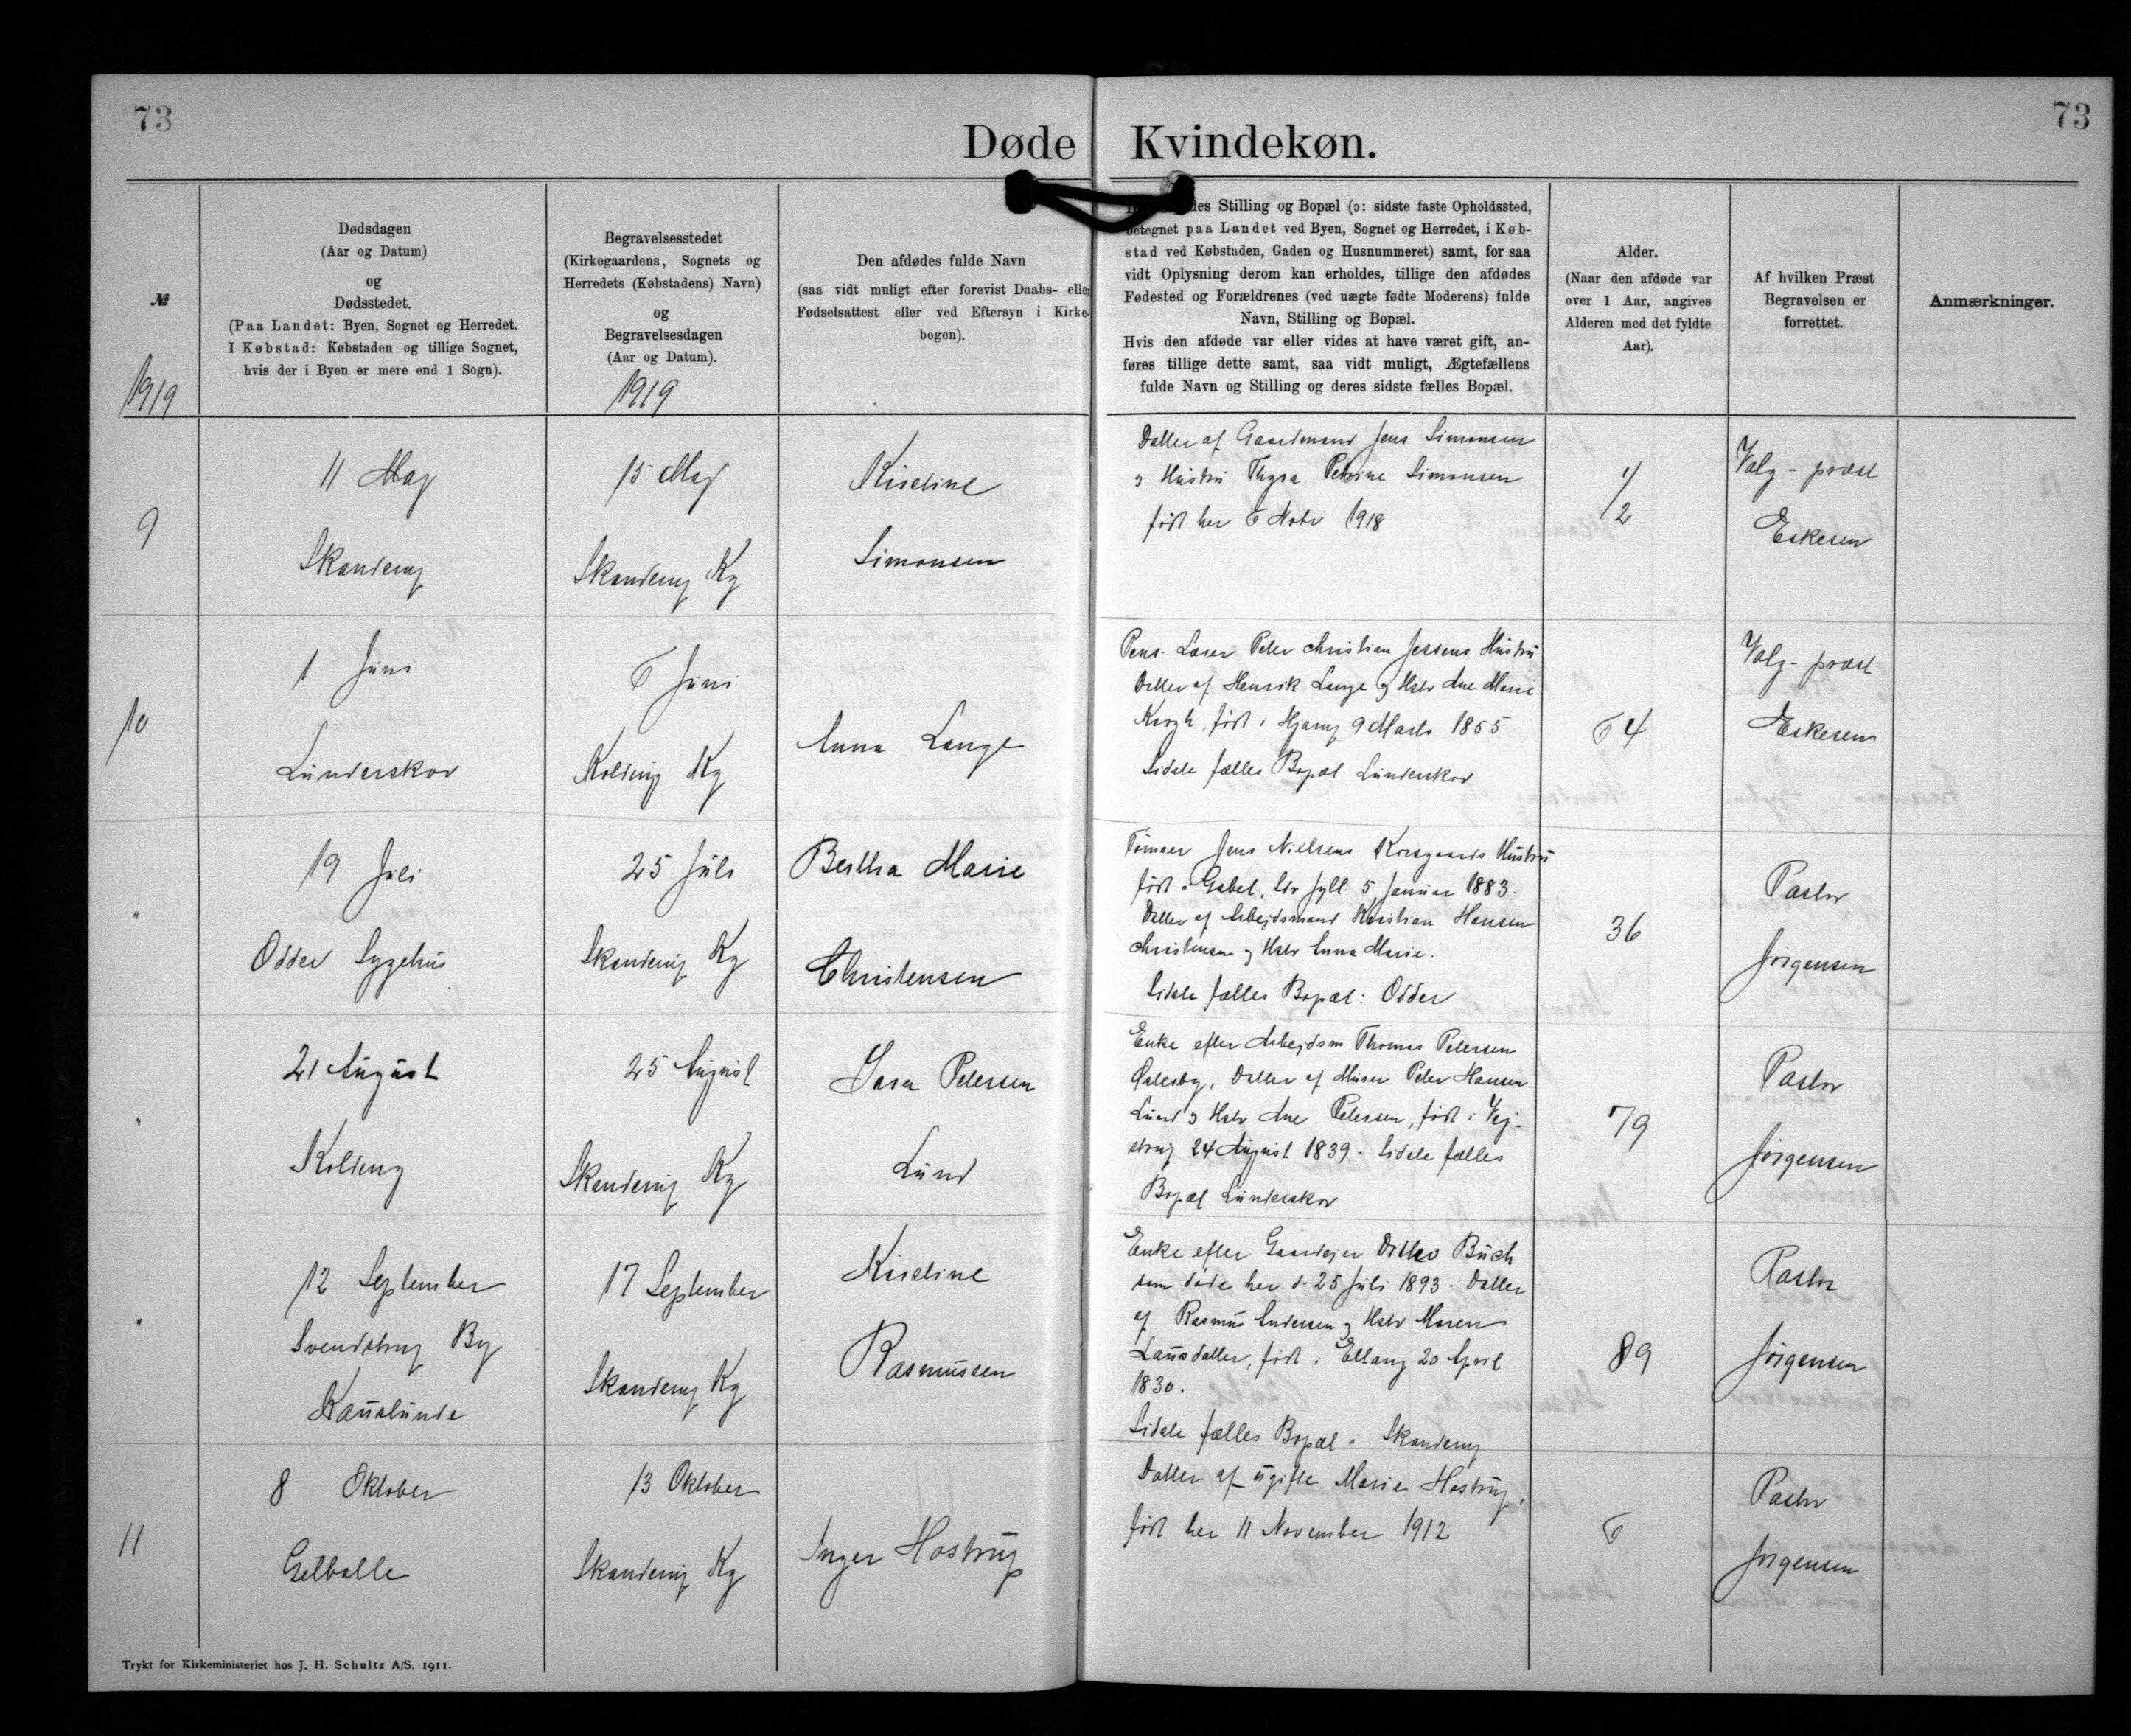 73
73
Døde Kvindekøn.
№
Dødsdagen
(Aar og Datum)
og
Dødsstedet.
(Paa Landet: Byen, Sognet og Herredet.
I Købstad: Købstaden og tillige Sognet,
hvis der i Byen er mere end 1 Sogn).
Begravelsesstedet
(Kirkegaardens, Sognets og
Herredets (Købstadens) Navn)
og
Begravelsesdagen
(Aar og Datum).
Den afdødes fulde Navn
(saa vidt muligt efter forevist Daabs- eller
Fødselsattest eller ved Eftersyn i Kirke-
bogen).
des Stilling og Bopæl (ɔ: sidste faste Opholdssted,
betegnet paa Landet ved Byen, Sognet og Herredet, i Køb-
stad ved Købstaden, Gaden og Husnummeret) samt, for saa
vidt Oplysning derom kan erholdes, tillige den afdødes
Fødested og Forældrenes (ved uægte fødte Moderens) fulde
Navn, Stilling og Bopæl.
Hvis den afdøde var eller vides at have været gift, an-
føres tillige dette samt, saa vidt muligt, Ægtefællens
fulde Navn og Stilling og deres sidste fælles Bopæl.
Alder.
(Naar den afdøde var
over 1 Aar, angives
Alderen med det fyldte
Aar).
Af hvilken Præst
Begravelsen er
forrettet.
Anmærkninger.
1919
1919
9
11 Maj
Skanderup
15 Maj
Skanderup Kg
Kirstine
Simonsen
Datter af Gaardmand Jens Simonsen
og Hustru Thyra Petrine Simonsen
født her 6 Nobr 1918
1/2
Valg-præst
Eskesen
10
1 Juni
Lunderskov
6 Juni
Kolding Kg
Anna Lange
Pens. Lærer Peter Christian Jessens Hustru
Datter af Henrik Lange og Hstr Ane Marie
Krogh, født i Hjarup 9 Marts 1855
Sidste fælles Bopæl Lunderskov
64
Valg-præst
Eskesen
"
19 Juli
Odder Sygehus
25 Juli
Skanderup Kg
Bertha Marie
Christensen
Tømrer Jens Nielsens Korsgaards Hustru
født i Gabel, Sdr Jyll. 5 Januar 1883.
Datter af Arbejdsmand Kristian Hansen
Christensen og Hstr Anna Marie.
Sidste fælles Bopæl: Odder
36
Pastor
Jørgensen
"
21 August
Kolding
25 August
Skanderup Kg
Sara Petersen
Lund
Enke efter Arbejdsm Thomas Petersen
Østerby, Datter af Murer Peter Hansen
Lund og Hstr Ane Petersen, født i Vej-
strup 24 August 1839. Sidste fælles
Bopæl Lunderskov
79
Pastor
Jørgensen
"
12 September
Svendstrup By
Kauslunde
17 September
Skanderup Kg
Kirstine
Rasmussen
Enke efter Gaardejer Ditlev Buch
som døde her d. 25 Juli 1893. Datter
af Rasmus Andersen og Hstr Maren
Lausdatter, født i Eltang 20 April
1830.
Sidste fælles Bopæl i Skanderup
89
Pastor
Jørgensen
11
8 Oktober
Gelballe
13 Oktober
Skanderup Kg
Inger Hostrup
Datter af ugifte Marie Hostrup,
født her 11 November 1912
6
Pastor
Jørgensen
Trykt for Kirkeministeriet hos J. H. Schultz A/S. 1911.